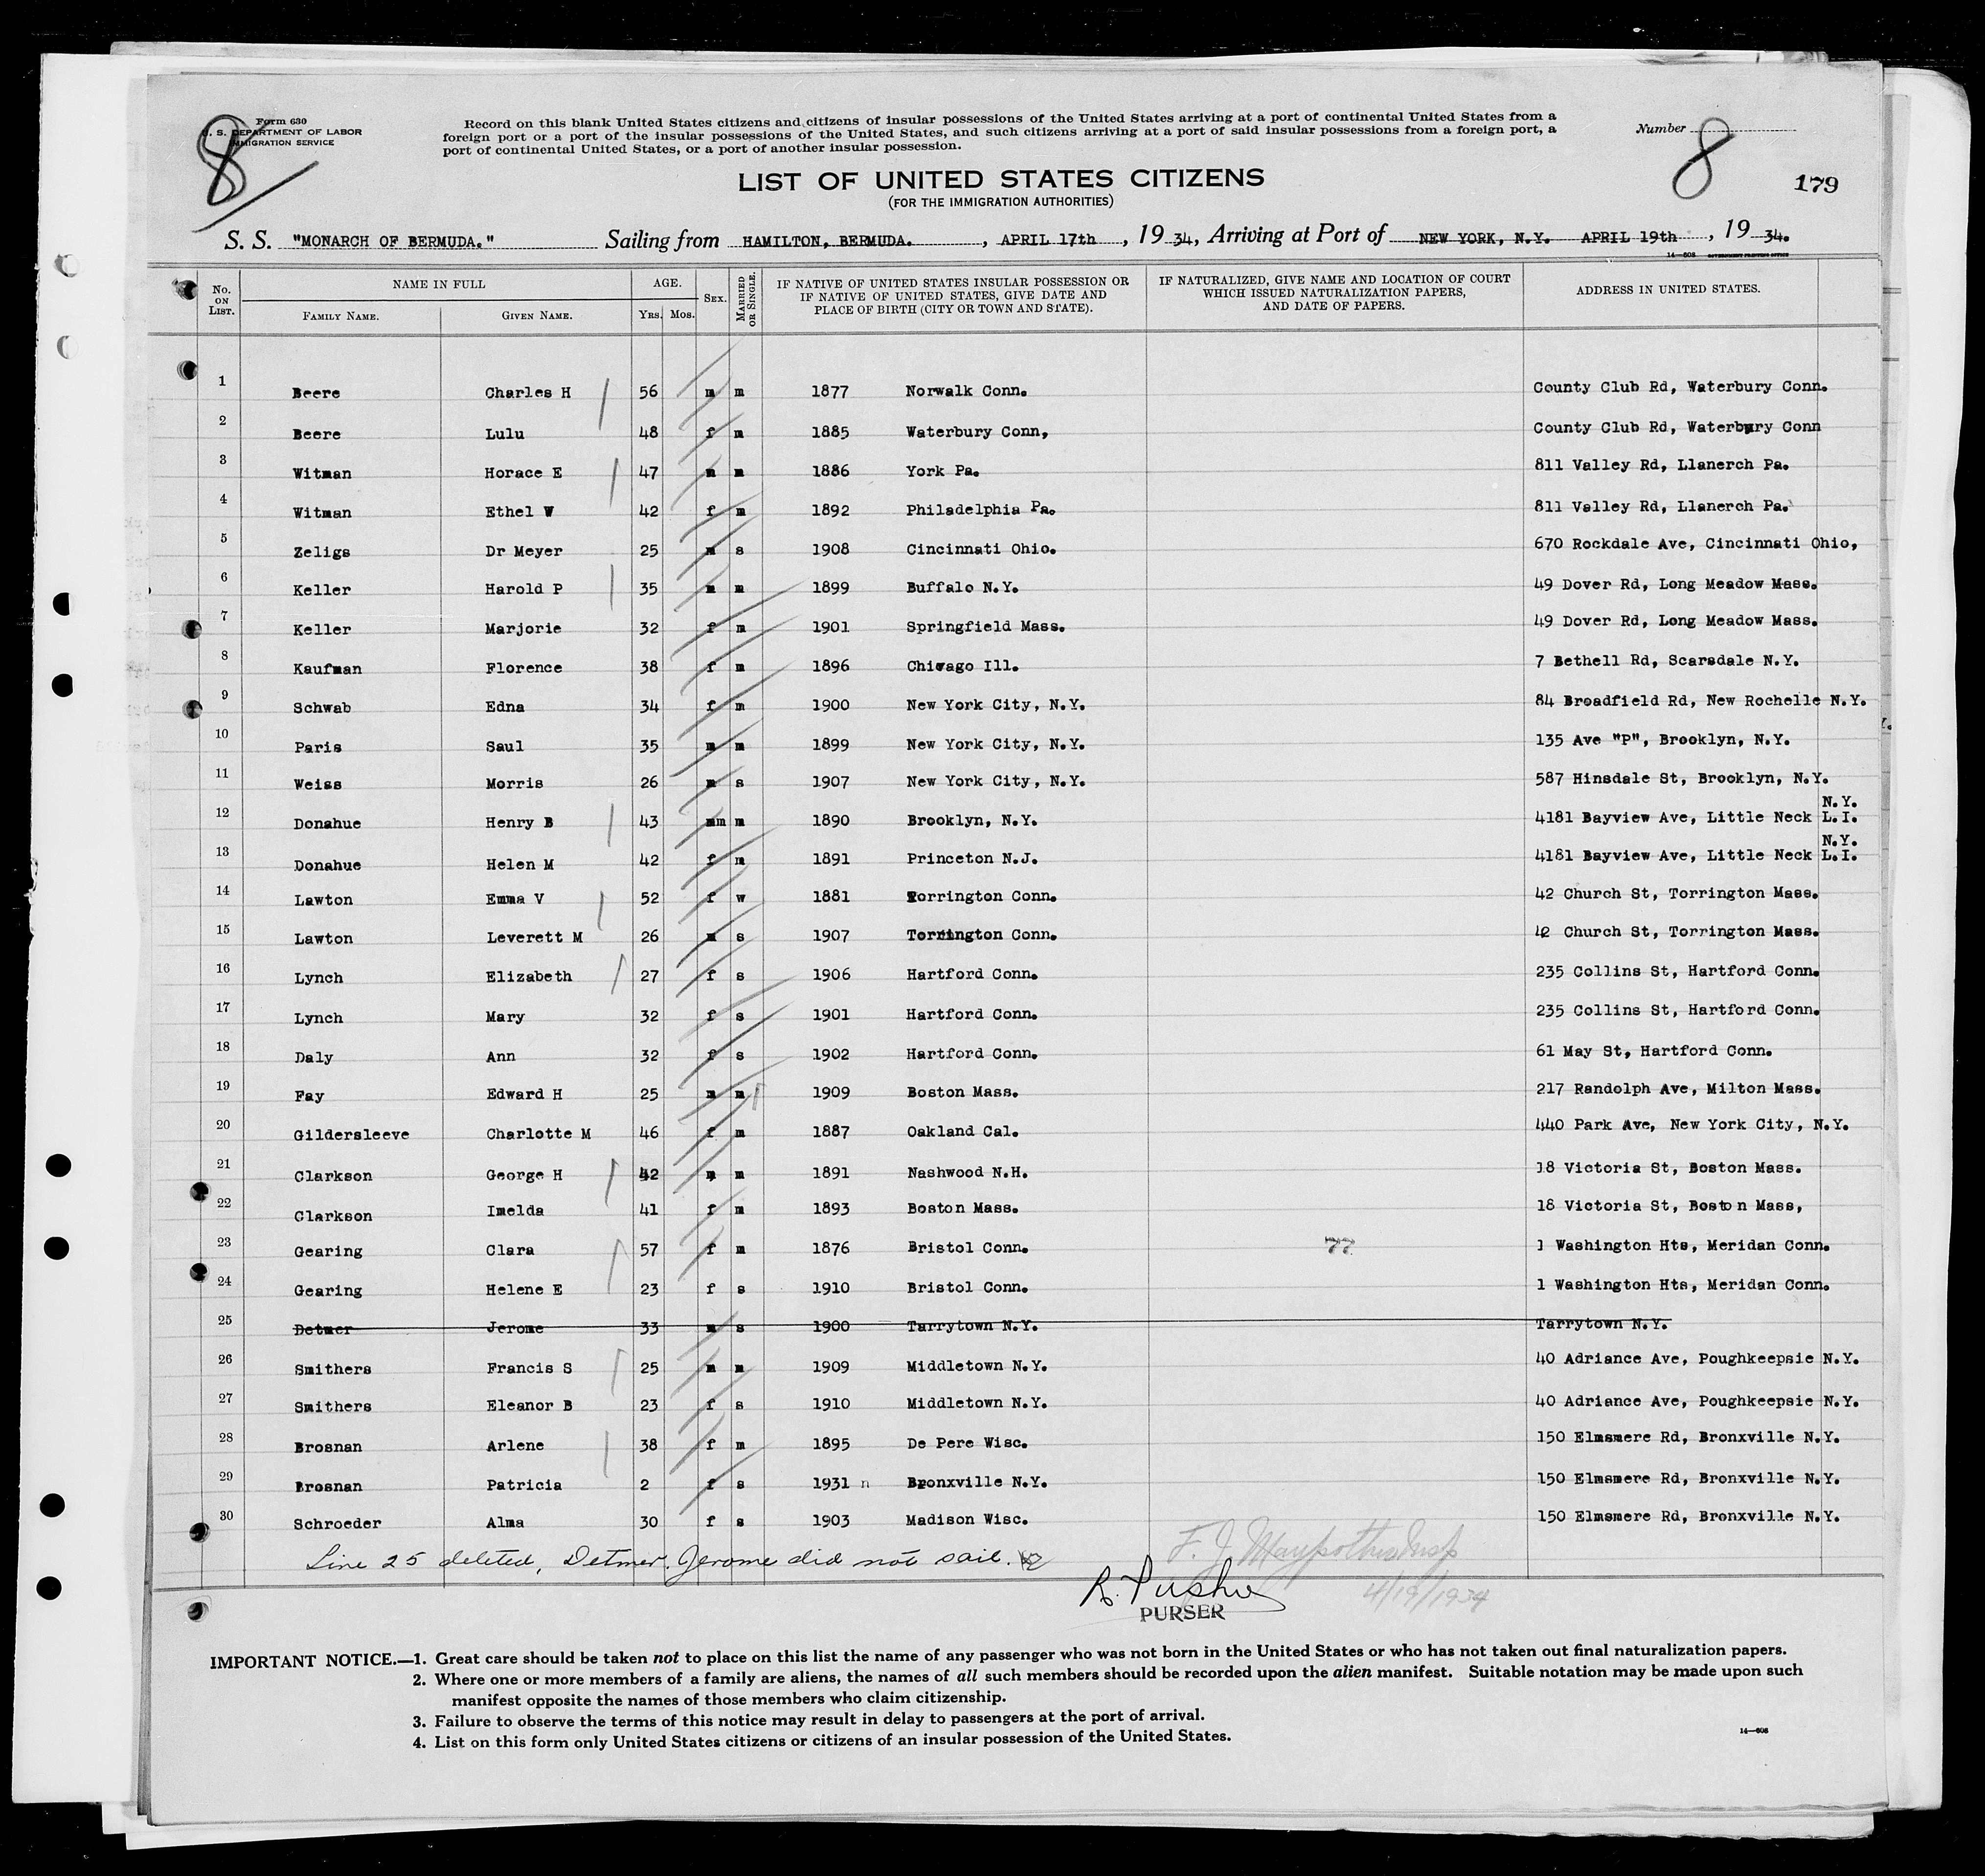 Form 630
U. S. DEPARTMENT OF LABOR
IMMIGRATION SERVICE
8
Record on this blank United States citizens and citizens of insular possessions of the United States arriving at a port of continental United States from a
foreign port or a port of the insular possessions of the United States, and such citizens arriving at a port of said insular possessions from a foreign port, a
port of continental United States, or a port of another insular possession.
Number 8
179
LIST OF UNITED STATES CITIZENS
(FOR THE IMMIGRATION AUTHORITIES)
S. S. "MONARCH OF BERMUDA." Sailing from HAMILTON, BERMUDA. , APRIL 17th , 19 34, Arriving at Port of NEW YORK, N.Y. APRIL 19th , 19 34.
14—608 GOVERNMENT PRINTING OFFICE
No. ON LIST. NAME IN FULL FAMILY NAME. GIVEN NAME. AGE. YRS. MOS. SEX. MARRIED OR SINGLE. IF NATIVE OF UNITED STATES INSULAR POSSESSION OR IF NATIVE OF UNITED STATES, GIVE DATE AND PLACE OF BIRTH (CITY OR TOWN AND STATE). IF NATURALIZED, GIVE NAME AND LOCATION OF COURT WHICH ISSUED NATURALIZATION PAPERS, AND DATE OF PAPERS. ADDRESS IN UNITED STATES.
1 Beere Charles H 56 m m 1877 Norwalk Conn. County Club Rd, Waterbury Conn.
2 Beere Lulu 48 f m 1885 Waterbury Conn, County Club Rd, Waterbury Conn
3 Witman Horace E 47 m m 1886 York Pa. 811 Valley Rd, Llanerch Pa.
4 Witman Ethel W 42 f m 1892 Philadelphia Pa. 811 Valley Rd, Llanerch Pa.
5 Zeligs Dr Meyer 25 m s 1908 Cincinnati Ohio. 670 Rockdale Ave, Cincinnati Ohio,
6 Keller Harold P 35 m m 1899 Buffalo N.Y. 49 Dover Rd, Long Meadow Mass.
7 Keller Marjorie 32 f m 1901 Springfield Mass. 49 Dover Rd, Long Meadow Mass.
8 Kaufman Florence 38 f m 1896 Chicago Ill. 7 Bethell Rd, Scarsdale N.Y.
9 Schwab Edna 34 f m 1900 New York City, N.Y. 84 Broadfield Rd, New Rochelle N.Y.
10 Paris Saul 35 m m 1899 New York City, N.Y. 135 Ave "P", Brooklyn, N.Y.
11 Weiss Morris 26 m s 1907 New York City, N.Y. 587 Hinsdale St, Brooklyn, N.Y.
12 Donahue Henry B 43 mm m 1890 Brooklyn, N.Y. 4181 Bayview Ave, Little Neck L.I. N.Y.
13 Donahue Helen M 42 f m 1891 Princeton N.J. 4181 Bayview Ave, Little Neck L.I. N.Y.
14 Lawton Emma V 52 f w 1881 Torrington Conn. 42 Church St, Torrington Mass.
15 Lawton Leverett M 26 m s 1907 Torrington Conn. 42 Church St, Torrington Mass.
16 Lynch Elizabeth 27 f s 1906 Hartford Conn. 235 Collins St, Hartford Conn.
17 Lynch Mary 32 f s 1901 Hartford Conn. 235 Collins St, Hartford Conn.
18 Daly Ann 32 f s 1902 Hartford Conn. 61 May St, Hartford Conn.
19 Fay Edward H 25 m m 1909 Boston Mass. 217 Randolph Ave, Milton Mass.
20 Gildersleeve Charlotte M 46 f m 1887 Oakland Cal. 440 Park Ave, New York City, N.Y.
21 Clarkson George H 42 m m 1891 Nashwood N.H. 18 Victoria St, Boston Mass.
22 Clarkson Imelda 41 f m 1893 Boston Mass. 18 Victoria St, Boston Mass,
23 Gearing Clara 57 f m 1876 Bristol Conn. 77 1 Washington Hts, Meridan Conn.
24 Gearing Helene E 23 f s 1910 Bristol Conn. 1 Washington Hts, Meridan Conn.
25 Detmer Jerome 33 m s 1900 Tarrytown N.Y. Tarrytown N.Y.
26 Smithers Francis S 25 m m 1909 Middletown N.Y. 40 Adriance Ave, Poughkeepsie N.Y.
27 Smithers Eleanor B 23 f s 1910 Middletown N.Y. 40 Adriance Ave, Poughkeepsie N.Y.
28 Brosnan Arlene 38 f m 1895 De Pere Wisc. 150 Elmsmere Rd, Bronxville N.Y.
29 Brosnan Patricia 2 f s 1931 n Bronxville N.Y. 150 Elmsmere Rd, Bronxville N.Y.
30 Schroeder Alma 30 f s 1903 Madison Wisc. 150 Elmsmere Rd, Bronxville N.Y.
Line 25 deleted, Detmer. Jerome did not sail.
F. J.
4/19/1934
PURSER
IMPORTANT NOTICE.—1. Great care should be taken not to place on this list the name of any passenger who was not born in the United States or who has not taken out final naturalization papers.
2. Where one or more members of a family are aliens, the names of all such members should be recorded upon the alien manifest. Suitable notation may be made upon such
manifest opposite the names of those members who claim citizenship.
3. Failure to observe the terms of this notice may result in delay to passengers at the port of arrival.
4. List on this form only United States citizens or citizens of an insular possession of the United States.
14—608